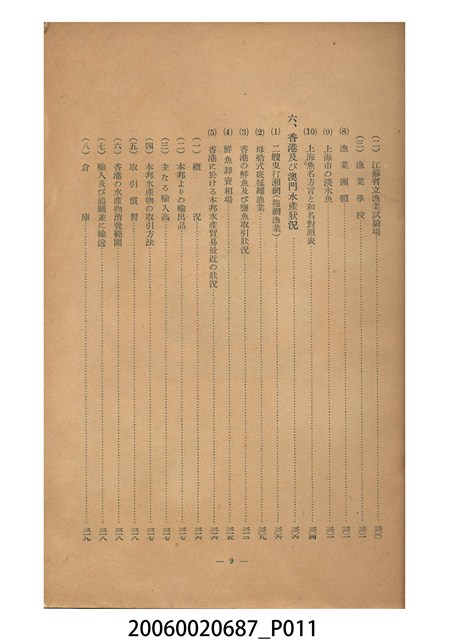 (二) 江蘇省立漁業試驗場……三〇〇
(三) 漁業學校……三〇一
(8) 漁業團體……三〇一
(9) 上海市の淡水魚……三〇二
(10) 上海魚名方言と和名對照表……三〇四
六、香港及び澳門水產狀況……三〇六
(1) 二艘曳打瀨網(拖網漁業)……三〇六
(2) 母船式底延繩漁業……三〇九
(3) 香港の鮮魚及び鹽魚取引狀況……三一二
(4) 鮮魚卸賣相場……三一五
(5) 香港に於ける本邦水產貿易最近の狀況……三一六
(一) 概況……三一六
(二) 本邦よりの輸出品……三一七
(三) 主なる輸入高……三一七
(四) 本邦水產物の取引方法……三一七
(五) 取引慣習……三一八
(六) 香港の水產物消費範圍……三一八
(七) 輸入及び通關並に輸送……三一八
(八) 倉庫……三一九
— 9 —
20060020687_P011